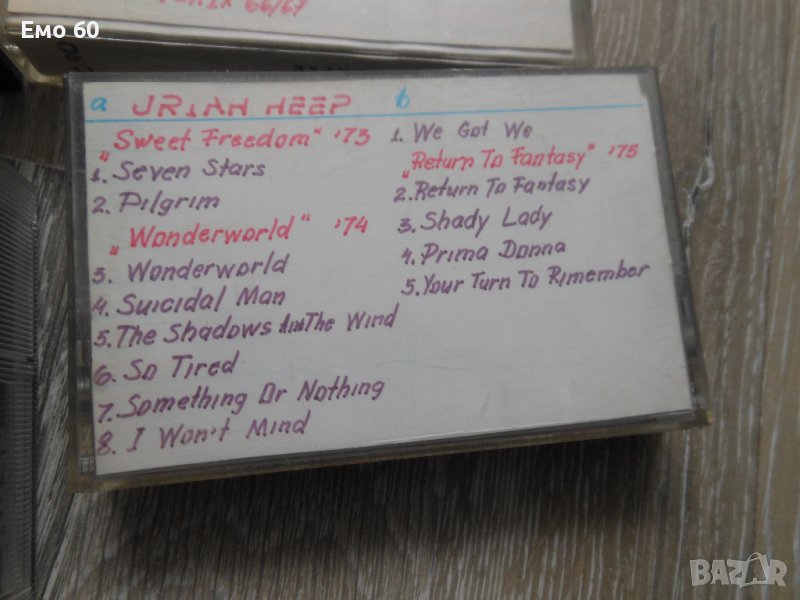 Емо 60
66/67
a URIAH HEEP b
"Sweet Freedom" '73
1. Seven Stars
2. Pilgrim
"Wonderworld" '74
3. Wonderworld
4. Suicidal Man
5. The Shadows And The Wind
6. So Tired
7. Something Or Nothing
8. I Won't Mind
1. We Got We
"Return To Fantasy" '75
2. Return To Fantasy
3. Shady Lady
4. Prima Donna
5. Your Turn To Rimember
BAZAR